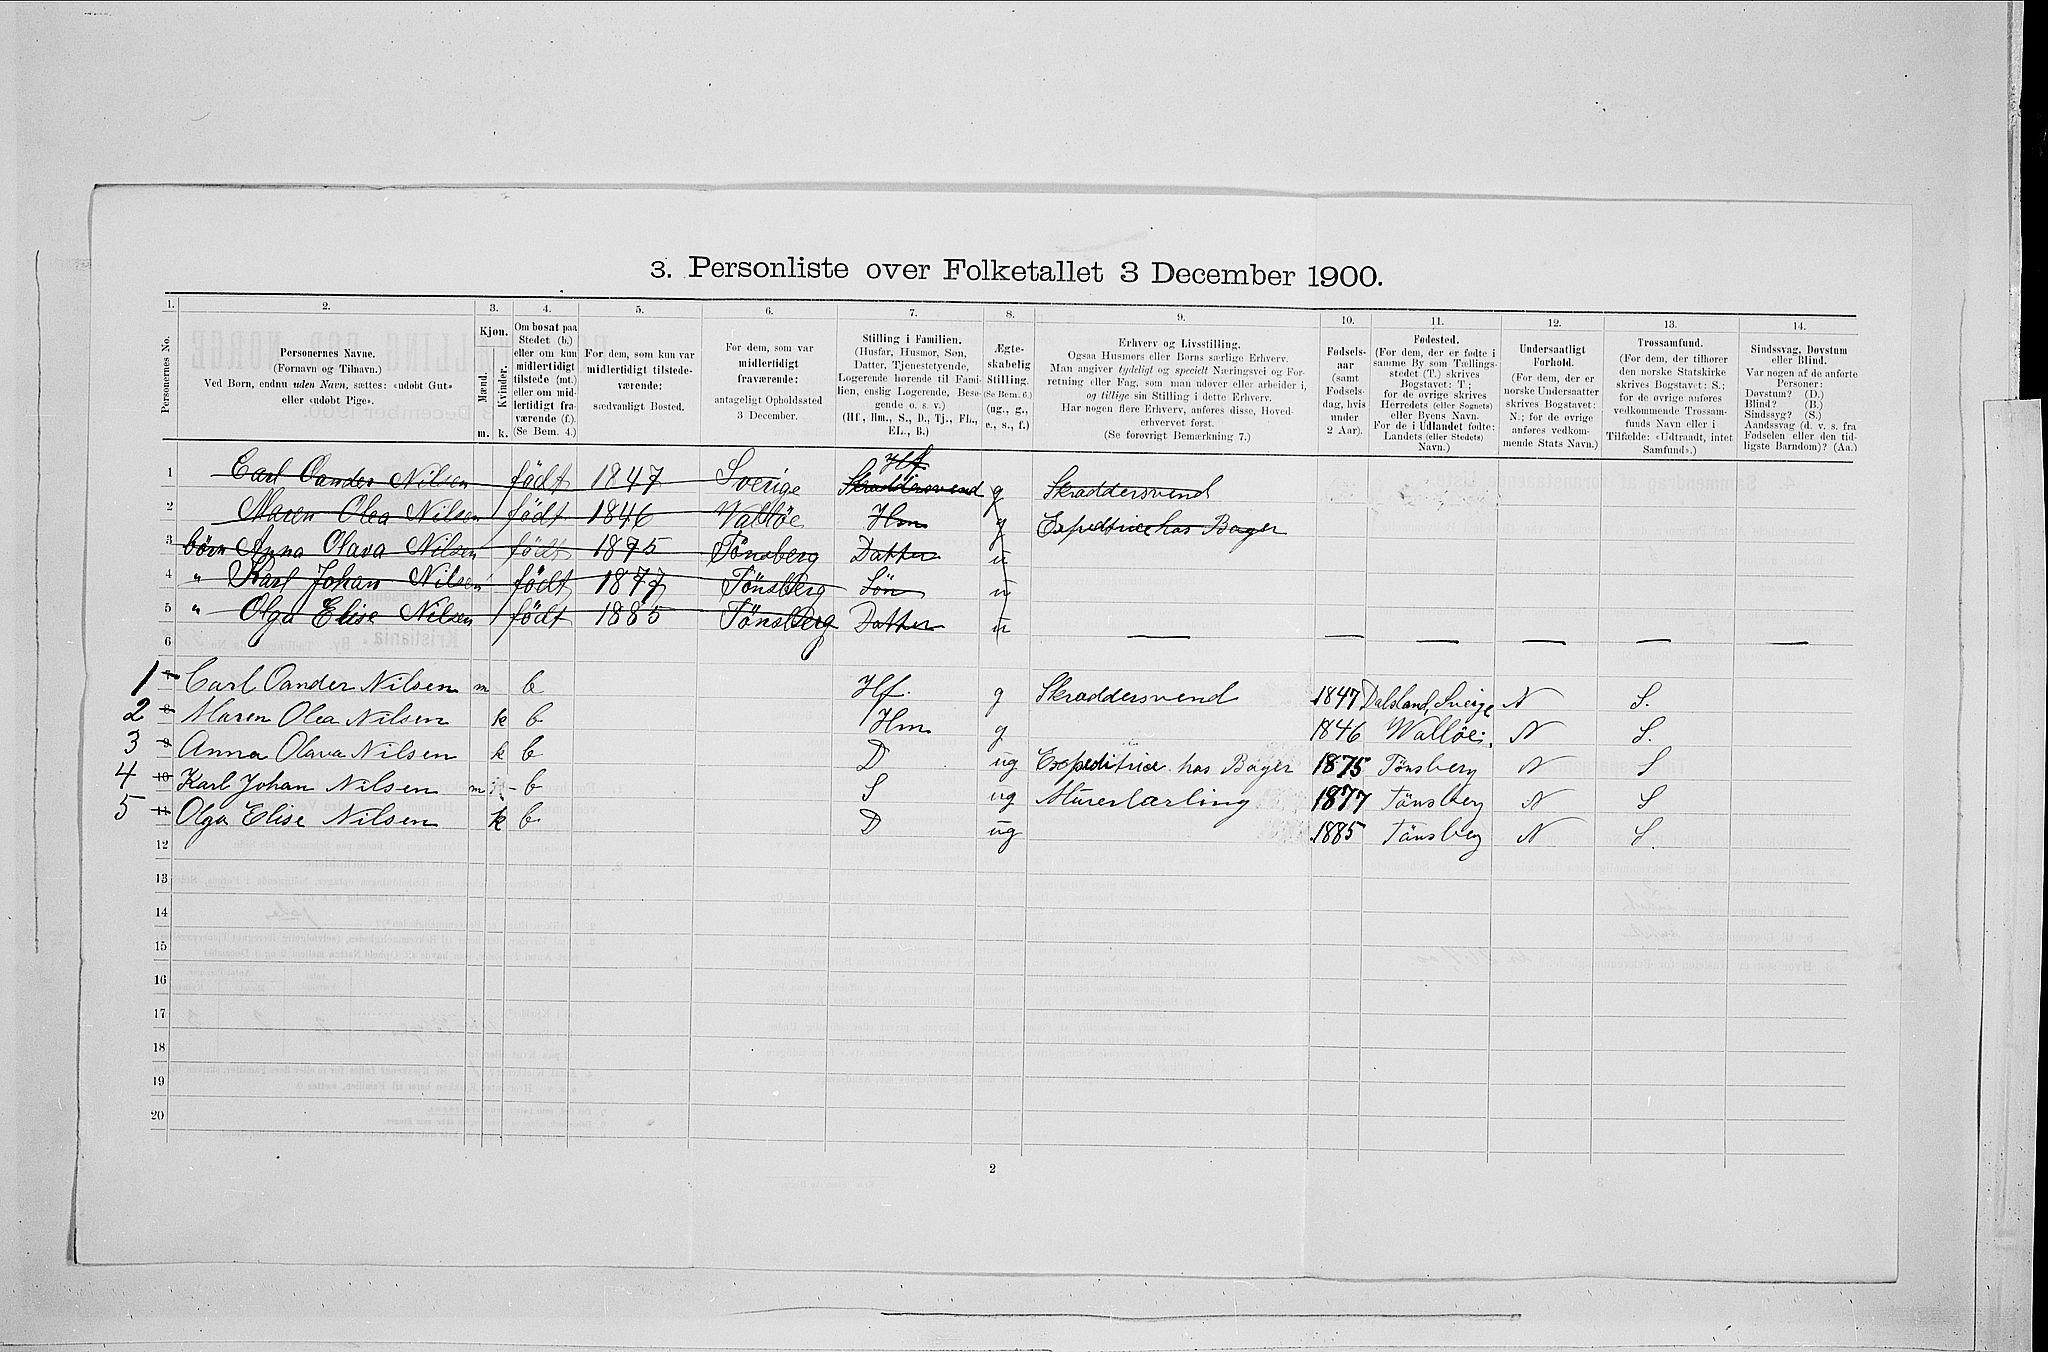 3. Personliste over Folketallet 3 December 1900.
1. 2. 3. 4. 5. 6. 7. 8. 9. 10. 11. 12. 13. 14.
Personernes No.
Personernes Navne.
(Fornavn og Tilnavn.)
Ved Børn, endnu uden Navn, sættes: «udøbt Gut»
eller «udøbt Pige».
Kjøn.
Mænd.
Kvinder.
m. k.
Om bosat paa
Stedet (b.)
eller om kun
midlertidigt
tilstede (mt.)
eller om mid-
lertidigt fra-
værende (f.)
(Se Bem. 4.)
For dem, som kun var
midlertidigt tilstede-
værende:
sædvanligt Bosted.
For dem, som var
midlertidigt
fraværende:
antageligt Opholdssted
3 December.
Stilling i Familien.
(Husfar, Husmor, Søn,
Datter, Tjenestetyende,
Logerende hørende til Fami-
lien, enslig Logerende, Besø-
gende o. s. v.)
(Hf, Hm., S., D., Tj., FL.,
EL., B.)
Ægte-
skabelig
Stilling.
(Se Bem. 6.)
(ug., g.,
e., s., f.)
Erhverv og Livsstilling.
Ogsaa Husmors eller Børns særlige Erhverv.
Man angiver tydeligt og specielt Næringsvei og For-
retning eller Fag, som man udøver eller arbeider i,
og tillige sin Stilling i dette Erhverv.
Har nogen flere Erhverv, anføres disse, Hoved-
erhvervet først.
(Se forøvrigt Bemærkning 7.)
Fødsels-
aar
(samt
Fødsels-
dag, hvis
under
2 Aar).
Fødested.
(For dem, der er fødte i
samme By som Tællings-
stedet (T.) skrives
Bogstavet: T.;
for de øvrige skrives
Herredets (eller Sognets)
eller Byens Navn.
For de i Udlandet fødte:
Landets (eller Stedets)
Navn.)
Undersaatligt
Forhold.
(For dem, der er
norske Undersaatter
skrives Bogstavet:
N.; for de øvrige
anføres vedkom-
mende Stats Navn.)
Trossamfund.
(For dem, der tilhører
den norske Statskirke
skrives Bogstavet: S.;
for de øvrige anføres
vedkommende Trossam-
funds Navn eller i
Tilfælde: «Udtraadt, intet
Samfund».)
Sindssvag, Døvstum
eller Blind.
Var nogen af de anførte
Personer:
Døvstum? (D.)
Blind? (B.)
Sindssyg? (S.)
Aandssvag (d. v. s. fra
Fødselen eller den tid-
ligste Barndom)? (Aa.)
Hf
1 Carl Oander Nilsen født 1847 Sverige Skræddersvend g Skræddersvend
2 Maren Olea Nilsen født 1846 Valløe Hm g Expeditrice hos Bager
3 børn Anna Olava Nilsen født 1875 Tönsberg Datter u
4 " Karl Johan Nilsen født 1877 Tönsberg Sön u
5 " Olga Elise Nilsen født 1885 Tönsberg Datter u
6 — — — — — —
1 7 Carl Oander Nilsen m b Hf. g Skræddersvend 1847 Dalsland, Sverige N S.
2 8 Maren Olea Nilsen k b Hm g 1846 Valløe N S.
3 9 Anna Olava Nilsen k b D ug Expeditrice hos Bager 1875 Tönsberg N S
4 10 Karl Johan Nilsen m b S ug Murerlærling 1877 Tönsberg N S
5 11 Olga Elise Nilsen k b D ug 1885 Tönsberg N S.
12
13
14
15
16
17
18
19
20
2